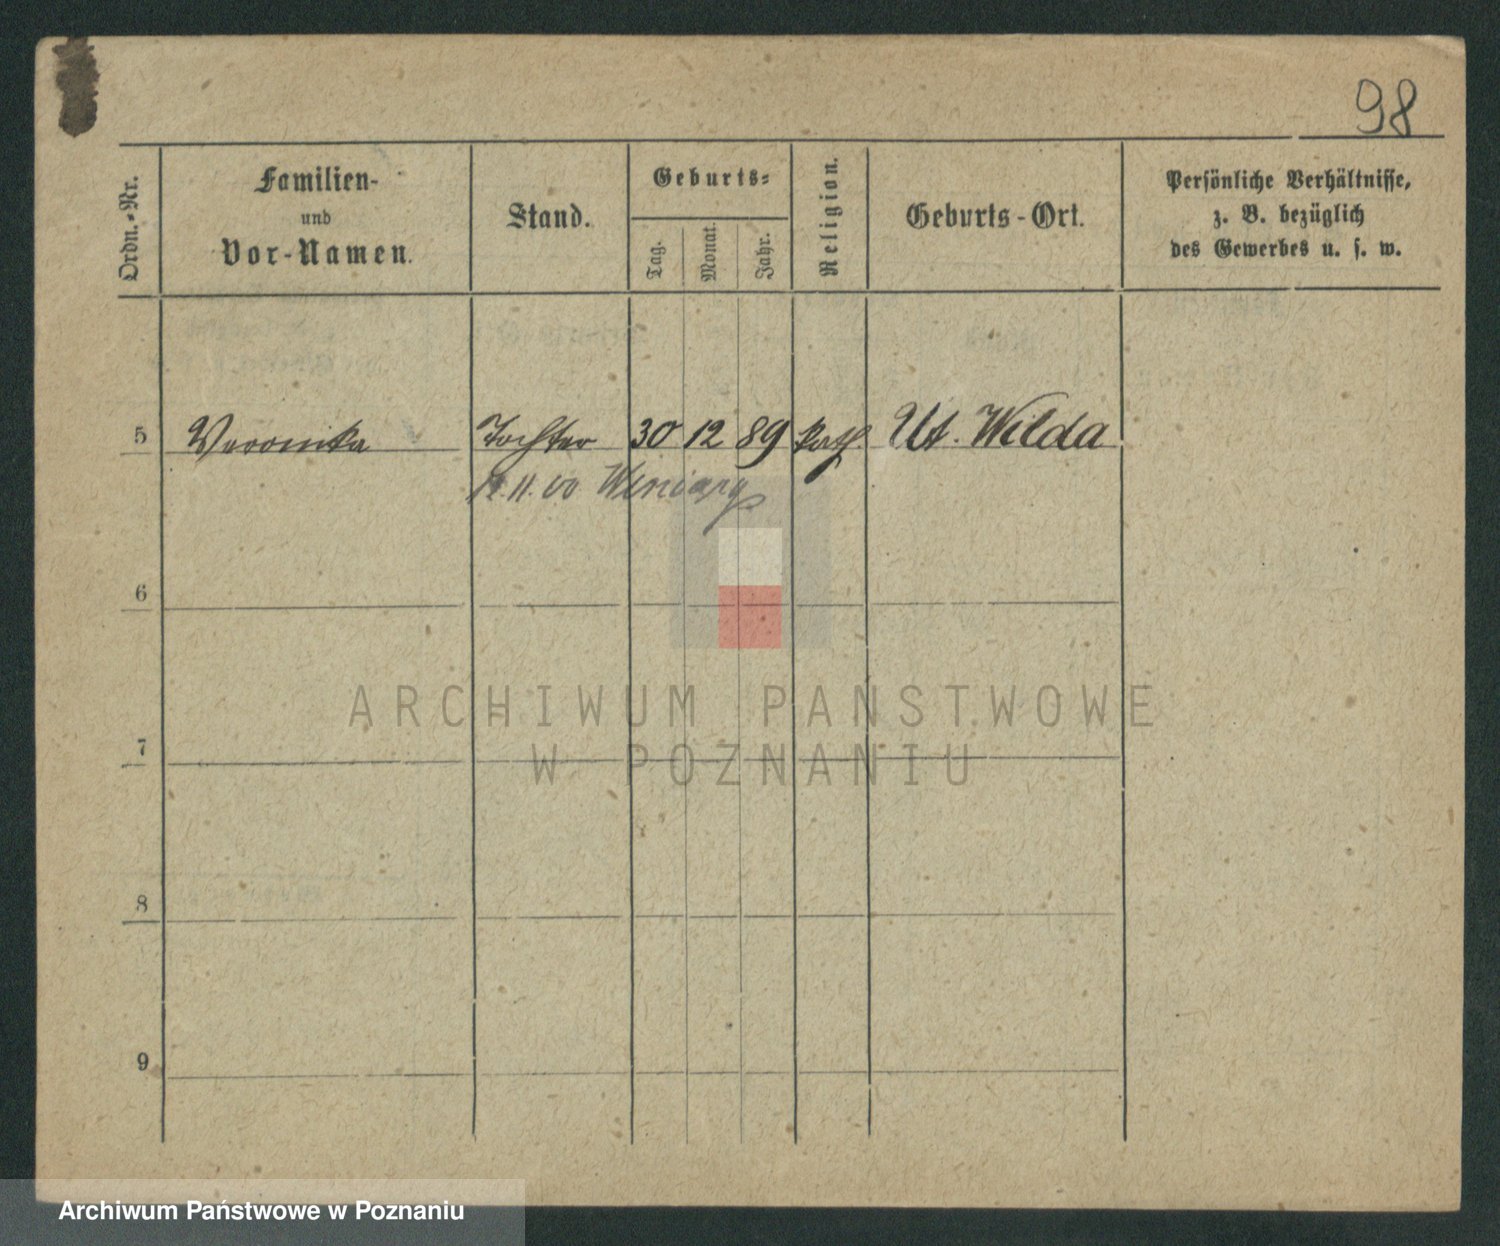 98
Ordn.-Nr.
Familien-
und
Vor-Namen.
Stand.
Geburts-
Tag.
Monat.
Jahr.
Religion.
Geburts-Ort.
Persönliche Verhältnisse,
z. B. bezüglich
des Gewerbes u. s. w.
5 Veronika Tochter 30 12 89 kath. Ut. Wilda
11. 00
6
ARCHIWUM PAŃSTWOWE
7
W POZNANIU
8
9
Archiwum Państwowe w Poznaniu